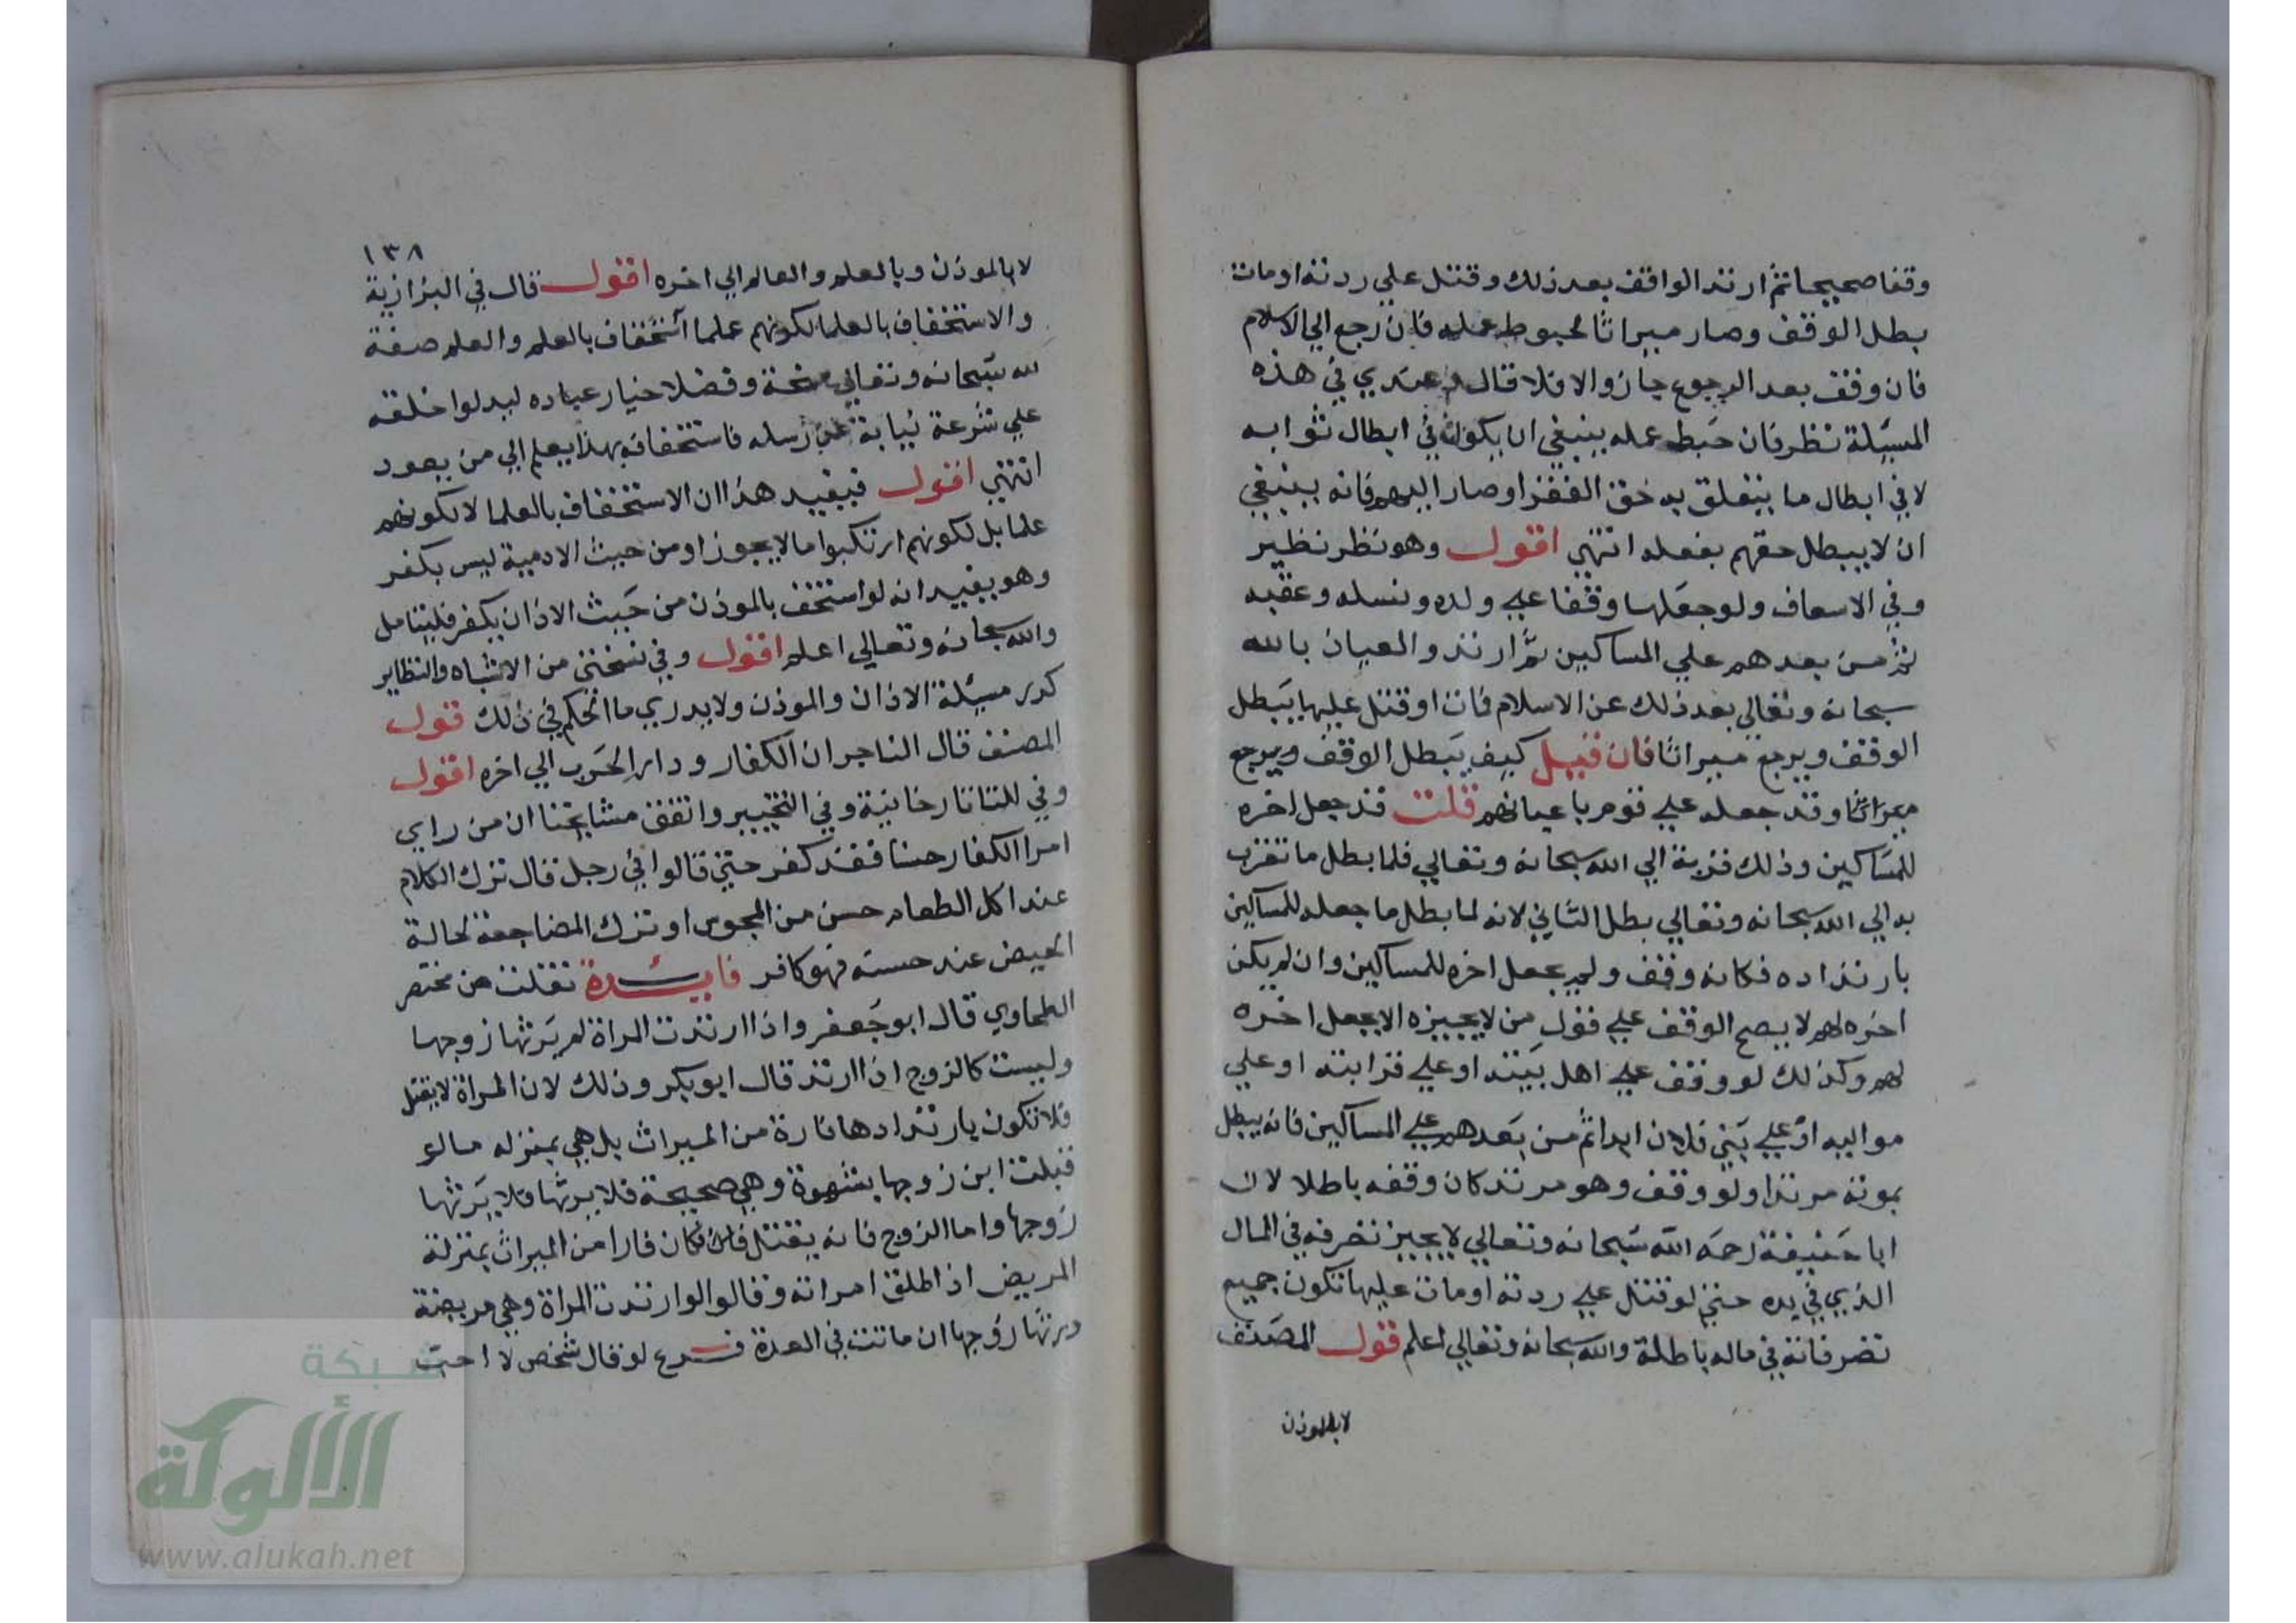 وقفا صحيحا ثم ارتد الواقف بعد ذلك وقتل علي ردته او مات
بطل الوقف وصار ميراثا لحبوط عمله فان رجع الي الاسلام
فان وقف بعد الرجوع جاز والا فلا قال وعندي في هذه
المسيلة نظر فان حبط عمله ينبغي ان يكون في ابطال ثوابه
لا في ابطال ما يتعلق به حق الفقرا وصار اليهم فانه ينبغي
ان لا يبطل حقهم بفعله انتهي اقول وهو نظر نظير
وفي الاسعاف ولو جعلها وقفا علي ولده ونسله وعقبه
ثم من بعدهم علي المساكين ثم ارتد والعياذ بالله
سبحانه وتعالي بعد ذلك عن الاسلام فمات او قتل عليها يبطل
الوقف ويرجع ميراثا فان قيل كيف يبطل الوقف ويرجع
ميراثا وقد جعله علي قوم باعيانهم قلت قد جعل اخره
للمساكين وذلك قربة الي الله سبحانه وتعالي فلما بطل ما تقرب
به الي الله سبحانه وتعالي بطل الثاني لانه لما بطل ما جعله للمساكين
بارتداده فكانه وقف ولم يجعل اخره للمساكين وان لم يكن
اخره لهم لا يصح الوقف علي قول من لا يجيزه الا بجعل اخره
لهم وكذلك لو وقف علي اهل بيته او علي قرابته او علي
مواليه او علي بني فلان ابدا ثم من بعدهم علي المساكين فانه يبطل
بموته مرتدا ولو وقف وهو مرتد كان وقفه باطلا لان
ابا حنيفة رحمه الله سبحانه وتعالي لا يجيز تصرفه في المال
الذي في يده حتي لو قتل علي ردته او مات عليها تكون جميع
تصرفاته في ماله باطلة والله سبحانه وتعالي اعلم قول المصنف
لا بالموذن
١٣٨
لا بالموذن وبالعلم والعالم الي اخره اقول قال في البزازية
والاستخفاف بالعلما لكونهم علما استخفاف بالعلم والعلم صفة
لله سبحانه وتعالي منحة وفضلا خيار عباده ليدلوا خلقه
علي شرعة نيابة عن رسله فاستخفافه بهذا يعلم الي من يعود
انتهي اقول فيفيد هذا ان الاستخفاف بالعلما لا لكونهم
علما بل لكونهم ارتكبوا ما لا يجوز او من حيث الادمية ليس بكفر
وهو يفيد انه لو استخف بالموذن من حيث الاذان يكفر فليتامل
والله سبحانه وتعالي اعلم اقول وفي نسختي من الاشباه والنظاير
كرر مسيلة الاذان والموذن ولا يدري ما الحكم في ذلك قول
المصنف قال التاجر ان الكفار ودار الحرب الي اخره اقول
وفي للتاتارخانية وفي التخيير واتفق مشايخنا ان من راي
امر الكفار حسنا فقد كفر حتي قالوا في رجل قال ترك الكلام
عند اكل الطعام حسن من المجوس او ترك المضاجعة لحالة
الحيض عند حسنه فهو كافر فايدة نقلت من مختصر
الطحاوي قال ابو جعفر واذا ارتدت المراة لم يرثها زوجها
وليست كالزوج اذا ارتد قال ابو بكر وذلك لان المراة لا يقتل
فلا تكون بارتدادها فارة من الميراث بل هي بمنزله ما لو
قبلت ابن زوجها بشهوة وهي صحيحة فلا يرثها فلا يرثها
زوجها واما الزوج فانه يقتل فكان فارا من الميراث بمنزلة
المريض اذا طلق امراته وقالوا لو ارتدت المراة وهي مريضة
ورثها زوجها ان ماتت في العدة فرع لو قال شخص لا احب
شبكة
الألوكة
www.alukah.net